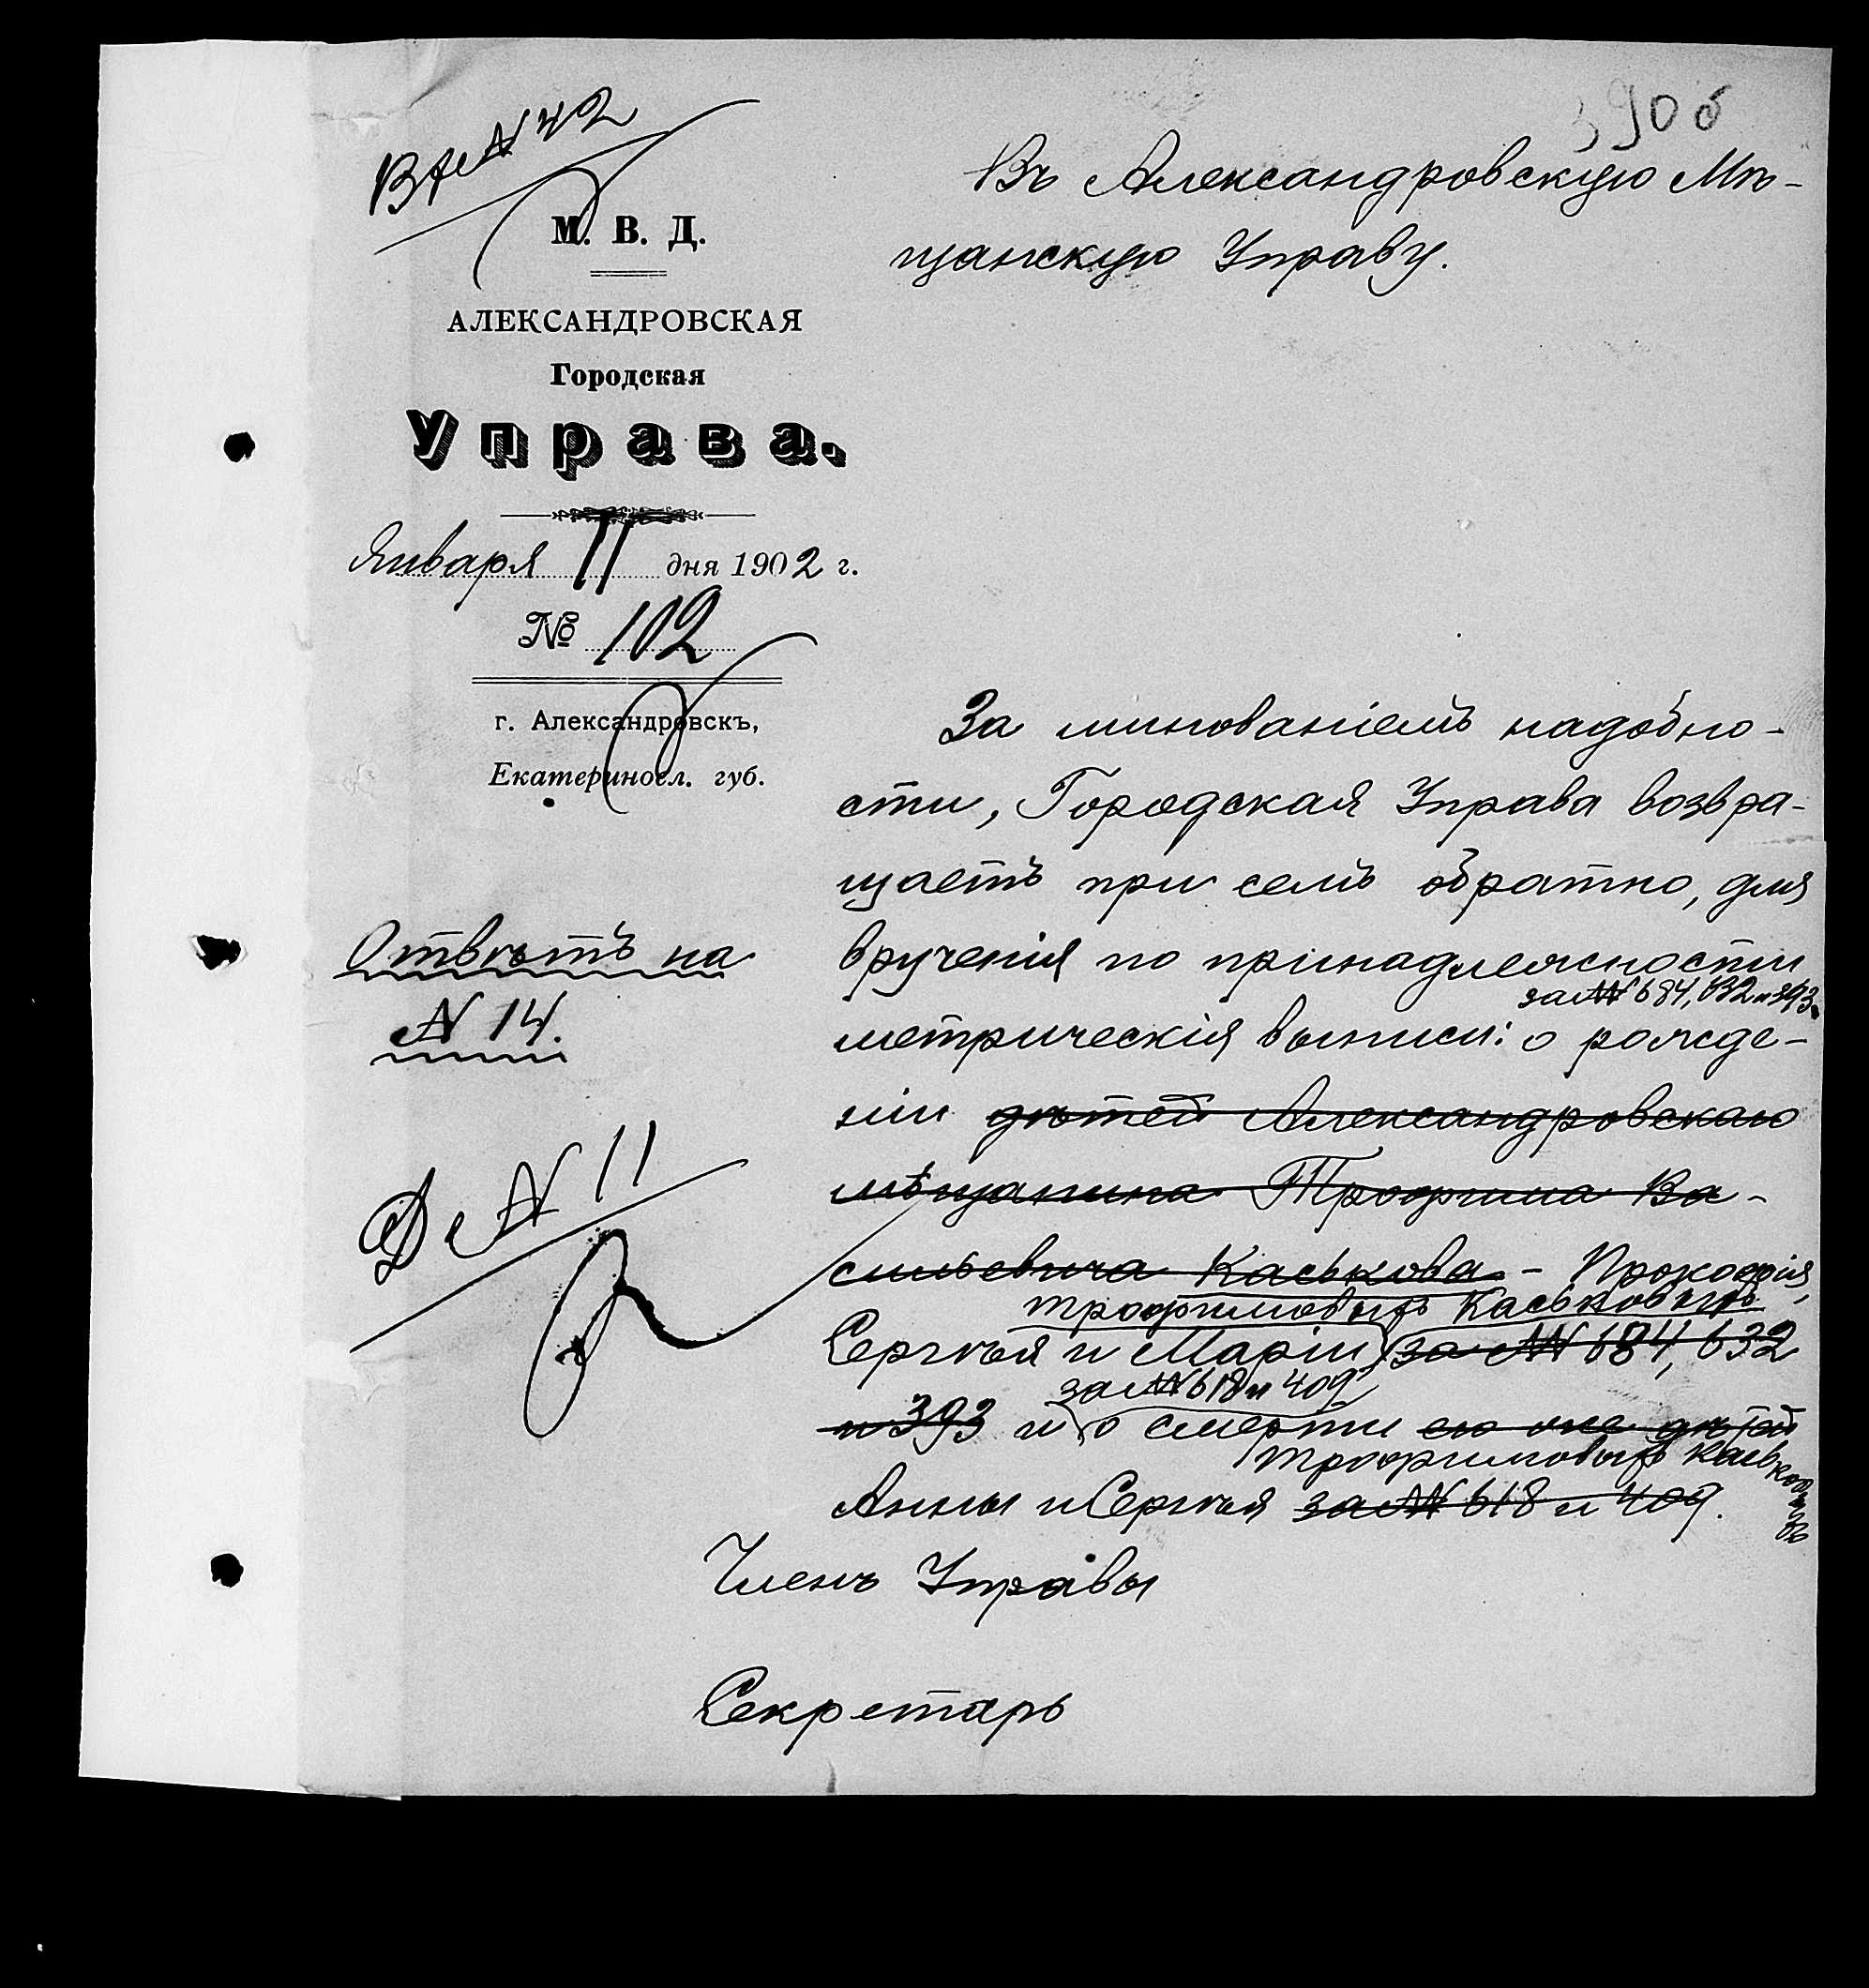 390 об
Вх № 42
М. В. Д.
АЛЕКСАНДРОВСКАЯ
Городская
Управа.
Января 11 дня 1902 г.
№ 102
г. Александровскъ,
Екатериносл. губ.
Отвѣтъ на
№ 14.
Д № 11
Въ Александровскую Мѣ-
щанскую Управу.
За минованіемъ надобно-
сти, Городская Управа возвра-
щаетъ при семъ обратно, для
врученія по принадлежности
за №№ 684, 632 и 393
метрическія выписи: о рожде-
ніи дѣтей Александровскаго
мѣщанина Трофима Ва-
сильевича Каськова - Прокофія,
Трофимовыхъ Каськовыхъ
Сергѣя и Маріи за №№ 684, 632
за №№ 618 и 409
и 393 и о смерти его же дѣтей
Трофимовыхъ Каськовыхъ
Анны и Сергѣя за №№ 618 и 409.
Членъ Управы
Секретарь